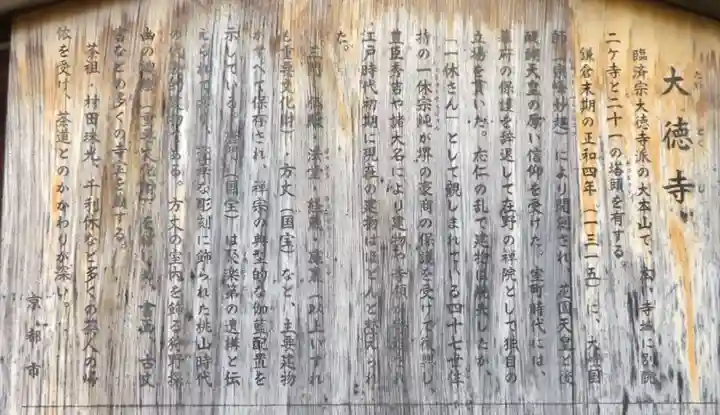 大徳寺
たい とく じ
臨済宗大徳寺派の大本山で、広い寺域に別院
二ヶ寺と二十一の塔頭を有する。
鎌倉末期の正和四年（一三一五）に、大燈国
師（宗峰妙超）により開創され、花園天皇と後
醍醐天皇の厚い信仰を受けた。室町時代には、
幕府の保護を辞退して在野の禅院として独自の
立場を貫いた。応仁の乱で建物は焼失したが、
「一休さん」として親しまれている四十七世住
持の一休宗純が堺の豪商の保護を受けて復興し、
豊臣秀吉や諸大名により建物や寺領が され
江戸時代初期に現在の建物はほとんど整えられ
た。
三門・仏殿・法堂・経蔵・ （以上いずれ
も重要文化財）方丈（国宝）など、主要建物
がすべて保存され、禅宗の典型的な伽藍配置を
示している。唐門（国宝）は聚楽第の遺構と伝
えられており、 な彫刻に飾られた桃山時代
の代表的建物である。方丈の室内を飾る狩野探
幽の （重要文化財）を 、書画、古文
書などの多くの寺宝を有する。
茶祖・村田珠光、千利休など多くの茶人の帰
依を受け、茶道とのかかわりが深い。
京都市